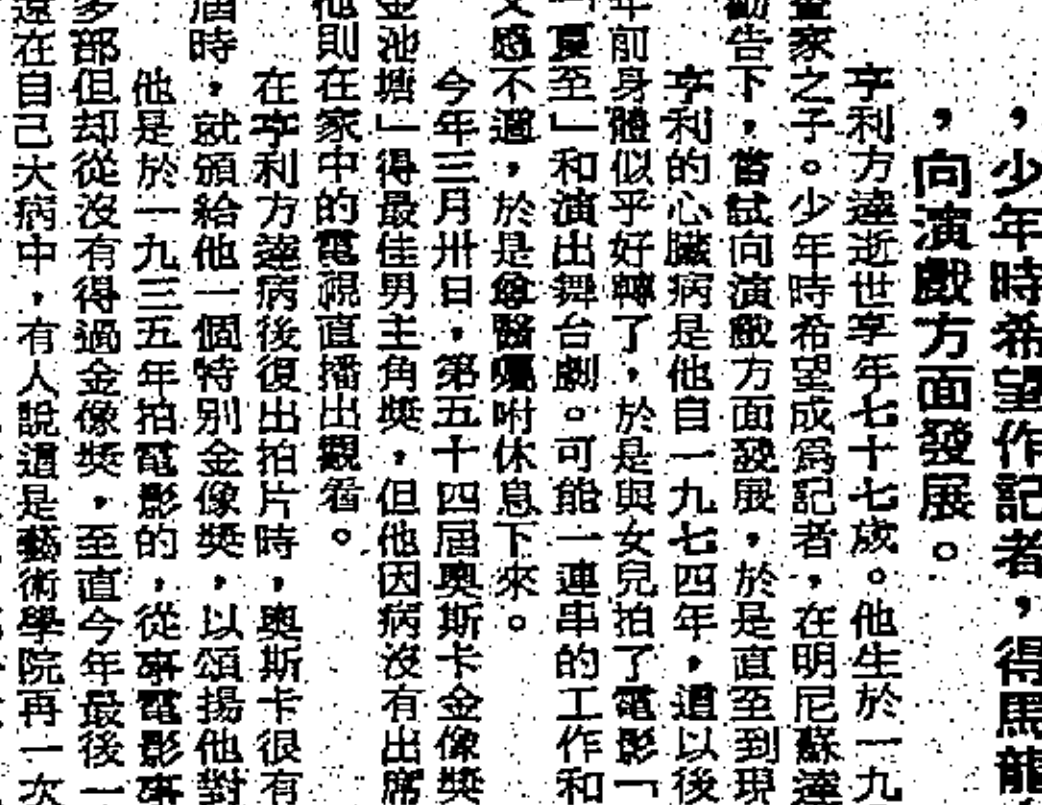 ，少年時希望作記者，得馬龍
，向演戲方面發展。
亨利方達逝世享年七十七歲。他生於一九
畫家之子。少年時希望成爲記者，在明尼蘇達
勸告下，嘗試向演戲方面發展，於是直至到現
亨利的心臟病是他自一九七四年，這以後
年前身體似乎好轉了，於是與女兒拍了電影「
「夏至」和演出舞台劇。可能一連串的工作和
感不適，於是聽醫囑咐休息下來。
今年三月卅日，第五十四屆奧斯卡金像獎
金池塘」得最佳男主角獎，但他因病沒有出席
他則在家中的電視直播出觀看。
在亨利方達病後復出拍片時，奧斯卡很有
屆時，就頒給他一個特別金像獎，以頌揚他對
他是於一九三五年拍電影的，從事電影事
多部但却從沒有得過金像獎，至直今年最後一
遠在自己大病中，有人說這是藝術學院再一次